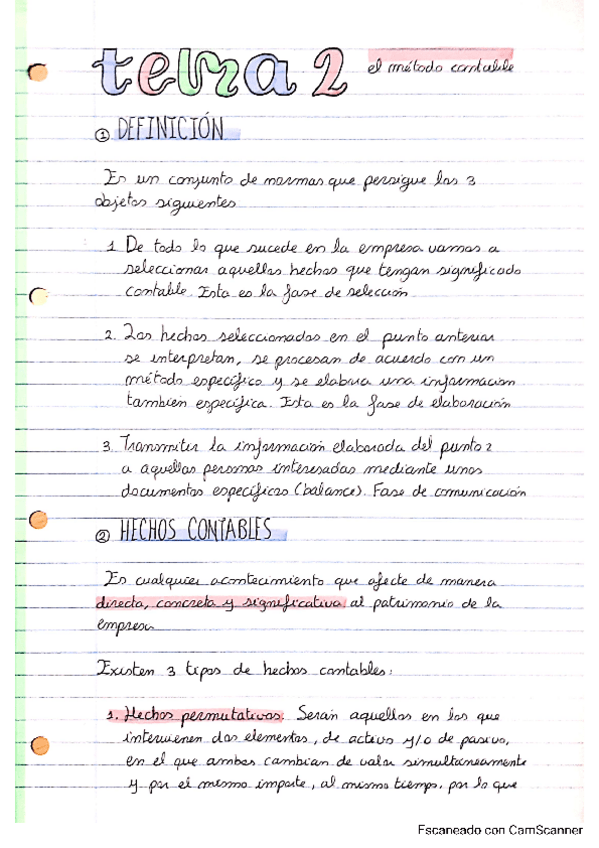 tema 2 el método contable
① DEFINICIÓN
Es un conjunto de normas que persigue los 3
objetos siguientes
1. De todo lo que sucede en la empresa vamos a
seleccionar aquellos hechos que tengan significado
contable. Esta es la fase de selección
2. Los hechos seleccionados en el punto anterior
se interpretan, se procesan de acuerdo con un
método específico y se elabora una información
también específica. Esta es la fase de elaboración
3. Transmitir la información elaborada del punto 2
a aquellas personas interesadas mediante unos
documentos específicos (balance). Fase de comunicación
② HECHOS CONTABLES
Es cualquier acontecimiento que afecte de manera
directa, concreta y significativa al patrimonio de la
empresa
Existen 3 tipos de hechos contables:
1. Hechos permutativos: Serán aquellos en los que
intervienen dos elementos, de activo y/o de pasivo,
en el que ambos cambian de valor simultáneamente
y por el mismo importe, al mismo tiempo, por lo que
Escaneado con CamScanner